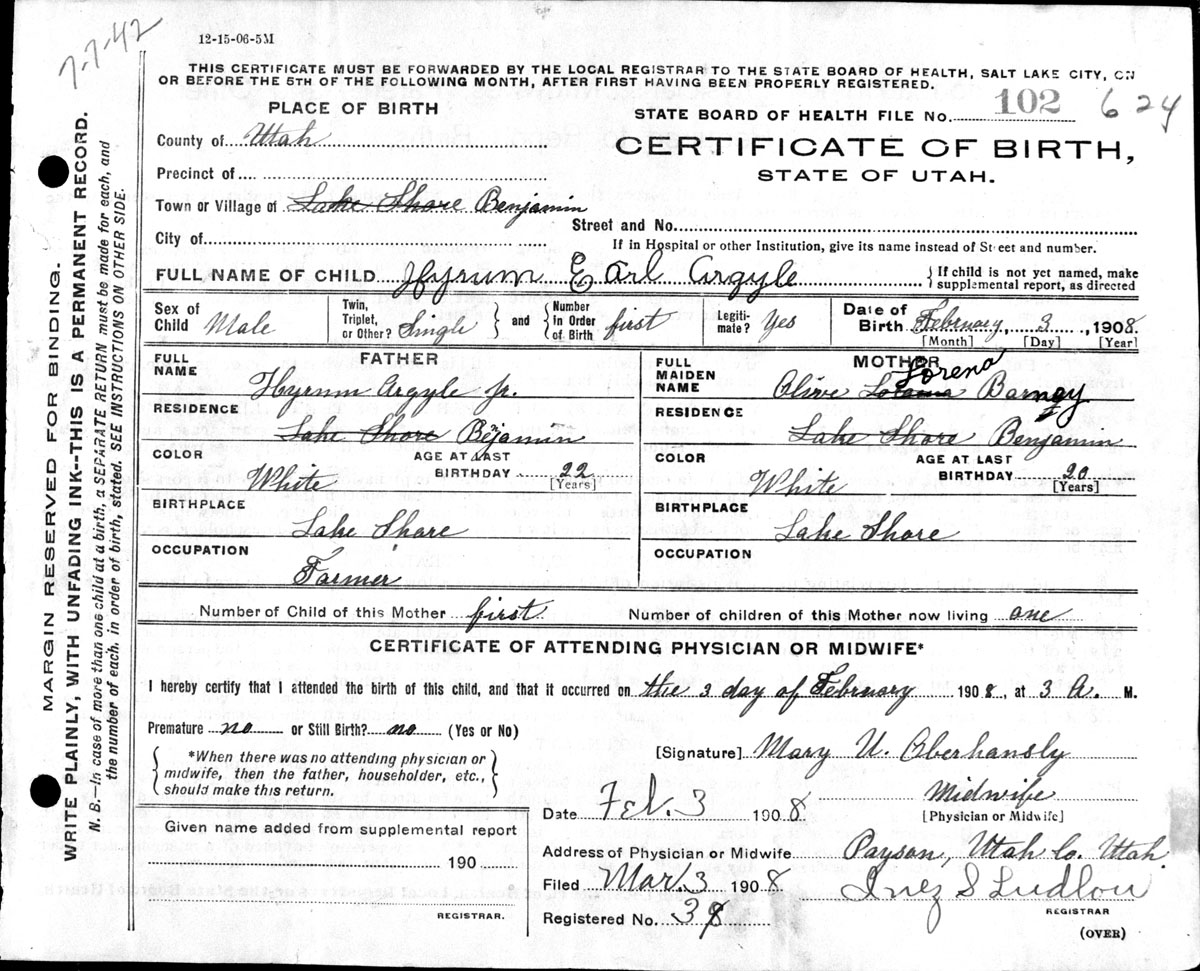 7-7-42
12-15-06-5M
THIS CERTIFICATE MUST BE FORWARDED BY THE LOCAL REGISTRAR TO THE STATE BOARD OF HEALTH, SALT LAKE CITY, ON
OR BEFORE THE 5TH OF THE FOLLOWING MONTH, AFTER FIRST HAVING BEEN PROPERLY REGISTERED.
PLACE OF BIRTH
STATE BOARD OF HEALTH FILE No. 102 624
County of Utah
CERTIFICATE OF BIRTH,
STATE OF UTAH.
Precinct of
Town or Village of Lake Shore Benjamin
Street and No.
City of
If in Hospital or other Institution, give its name instead of Street and number.
FULL NAME OF CHILD Hyrum Earl Argyle
{If child is not yet named, make
supplemental report, as directed
Sex of Child Male
Twin, Triplet, or Other? Single } and { Number in Order of Birth first
Legitimate? Yes
Date of Birth February, 3, 1908.
[Month] [Day] [Year]
FATHER
FULL NAME
Hyrum Argyle Jr.
RESIDENCE
Lake Shore Benjamin
COLOR
White
AGE AT LAST BIRTHDAY 22
[Years]
BIRTHPLACE
Lake Shore
OCCUPATION
Farmer
MOTHER
FULL MAIDEN NAME
Lorena
Olive Barney
RESIDENCE
Lake Shore Benjamin
COLOR
White
AGE AT LAST BIRTHDAY 20
[Years]
BIRTHPLACE
Lake Shore
OCCUPATION
Number of Child of this Mother first
Number of children of this Mother now living one
CERTIFICATE OF ATTENDING PHYSICIAN OR MIDWIFE*
I hereby certify that I attended the birth of this child, and that it occurred on the 3 day of February 1908, at 3 A. M.
Premature no or Still Birth? no (Yes or No)
{*When there was no attending physician or
midwife, then the father, householder, etc.,
should make this return.}
[Signature] Mary U. Oberhansly
Midwife
[Physician or Midwife]
Date Feb. 3 1908
Given name added from supplemental report
190
REGISTRAR.
Address of Physician or Midwife Payson, Utah Co. Utah.
Filed Mar. 3 1908
Inez S Ludlow
REGISTRAR
Registered No. 38
(OVER)
MARGIN RESERVED FOR BINDING.
WRITE PLAINLY, WITH UNFADING INK--THIS IS A PERMANENT RECORD.
N. B.—In case of more than one child at a birth, a SEPARATE RETURN must be made for each, and
the number of each, in order of birth, stated. SEE INSTRUCTIONS ON OTHER SIDE.